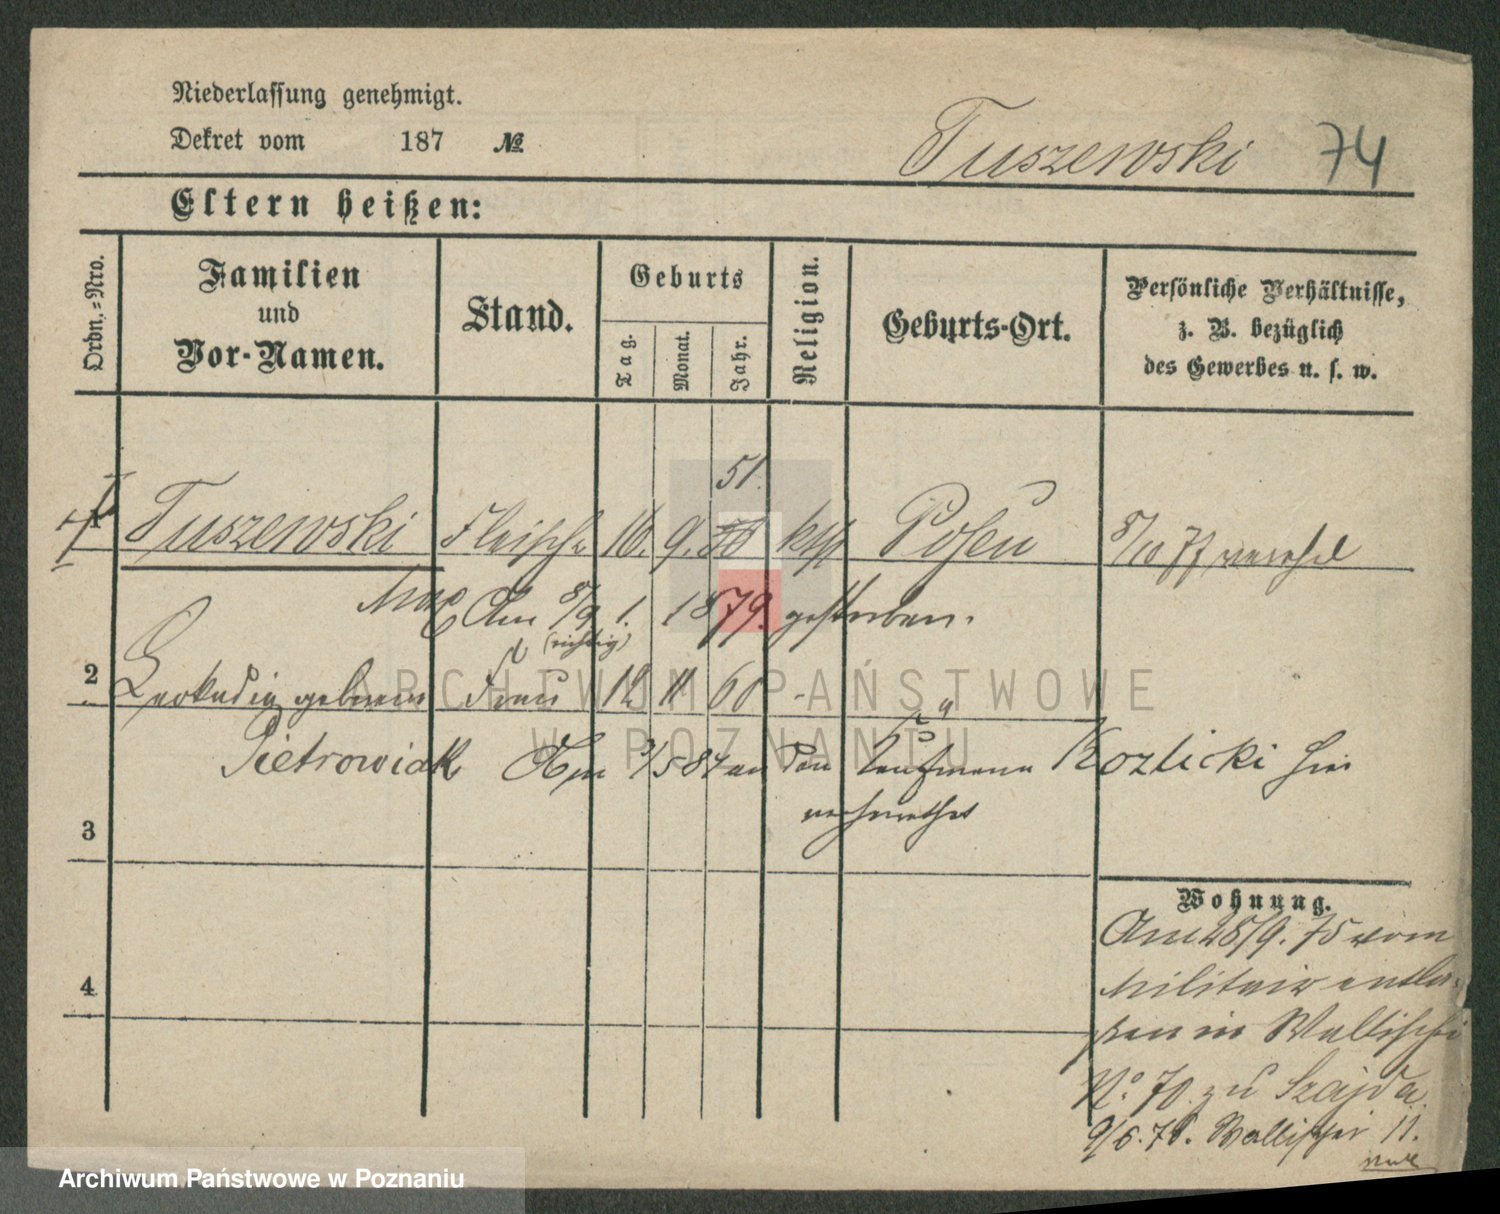 Niederlassung genehmigt.
Dekret vom 187 №
Tuszewski 74
Eltern heißen:
Ordn.=Nro.
Familien
und
Vor-Namen.
Stand.
Geburts
Tag.
Monat.
Jahr.
Religion.
Geburts-Ort.
Persönliche Verhältnisse,
z. B. bezüglich
des Gewerbes u. s. w.
51.
1 Tuszewski Fleischer 16. 9. kth Posen 8/10 77
Max Am 8/9 1. 1879. gestorben.
(richtig)
2 Leokadia geborene Frau 12 11 60 - "
Pietrowiak Am /5 84 an den Kaufmann Kozlicki hier
verheirathet
3
4
Wohnung.
Am 28/9. 75 vom
Militair entlas-
sen in Wallischei
No. 70. zu Szajda
9/6. 78. Wallischei 11.
ARCHIWUM PAŃSTWOWE
W POZNANIU
Archiwum Państwowe w Poznaniu